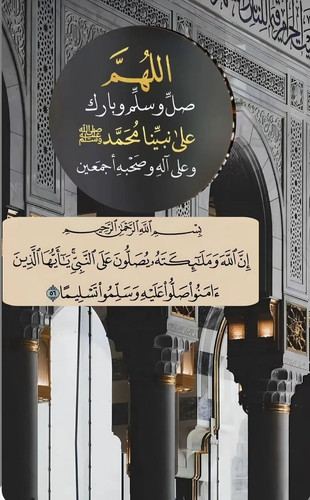 اللهُمَّ
صلِّ وسلِّم وبارك
على نبينا مُحَمَّد ﷺ
وعلى آله وصَحْبِه أجمعين
بِسْمِ اللَّهِ الرَّحْمَٰنِ الرَّحِيمِ
إِنَّ اللَّهَ وَمَلَٰٓئِكَتَهُۥ يُصَلُّونَ عَلَى النَّبِيِّۚ يَٰٓأَيُّهَا الَّذِينَ
ءَامَنُوا۟ صَلُّوا۟ عَلَيْهِ وَسَلِّمُوا۟ تَسْلِيمًا ٥٦